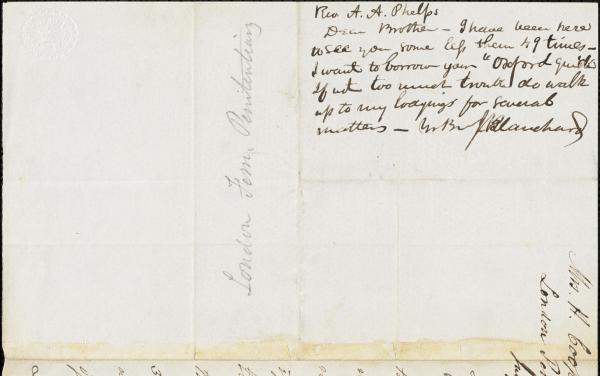 Rev A. A. Phelps
Dear Brother – I have been here
to see you some less than 49 times –
I want to borrow your "Oxford guide
If not too much trouble do walk
up to my lodgings for several
matters – Yr Br J Blanchard
London Fem. Penitentiary
Mrs. H.
London